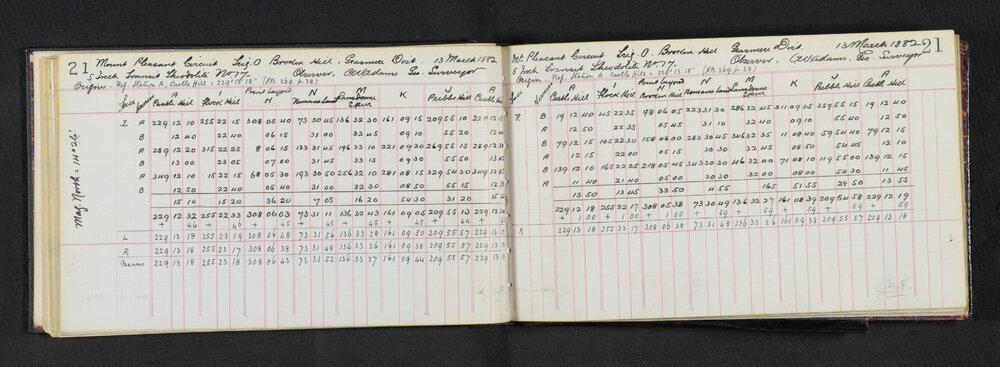 21 Mount Pleasant Circuit Trig. O Broken Hill Grasmere Dist. 13 March 1882
5 Inch Transit Theodolite No 17. Observer, C.W. Adams, Geo. Surveyor
Origin. Ref. Station A, Castle Hill = 229° 13' 18"
Mag North = 14° 26'
A I N M K J A
Castle Hill Flock Hill H Nomans Land Lansdowne Spur Pebble Hill Castle Hill
I A 229 12 10 255 22 15 308 05 40 73 30 45 136 32 30 161 09 15 209 55 10 229 12 15
B 12 40 22 40 06 15 31 00 32 45 09 10 55 20 12
A 289 12 20 315 22 25 8 06 15 133 31 45 196 33 10 221 09 30 269 55 15 289 12
B 13 00 23 05 07 00 31 45 33 15 09 30 55 50 13
A 349 12 10 15 22 15 68 05 30 193 30 50 256 32 10 281 08 15 329 54 30 349 12
B 12 50 22 40 05 40 31 00 32 30 08 50 55 15 12
15 10 15 20 36 20 7 05 16 20 54 30 31 20 15
229 12 32 255 22 33 308 06 03 73 31 11 136 32 43 161 09 05 209 55 13 229 12
+ 46 + 46 + 45 + 45 + 45 + 45 + 44 +
L 229 13 18 255 23 19 308 06 48 73 31 56 136 33 28 161 09 50 209 55 57 229 13 18
R 229 13 18 255 23 17 308 06 38 73 31 48 136 33 26 161 09 38 209 55 57 229 13 18
Means 229 13 18 255 23 18 308 06 43 73 31 52 136 33 27 161 09 44 209 55 57 229 13 18
Mt Pleasant Circuit Trig. O Broken Hill Grasmere Dist. 13 March 1882 21
5 Inch Transit Theodolite No 17. Observer, C.W. Adams, Geo. Surveyor
Origin. Ref. Station A, Castle Hill = 229° 13' 18"
A I H N M K J A
Castle Hill Flock Hill Broken Hill Nomans Land Lansdowne Spur Pebble Hill Castle Hill
R B 19 12 40 45 22 35 98 06 05 223 31 30 286 32 45 311 09 05 359 55 15 19 12 40
A 12 50 22 35 05 45 31 10 32 40 09 10 55 40 12 50
B 79 12 15 105 22 30 158 06 00 283 30 45 346 32 35 11 08 40 59 54 40 79 12 15
A 12 15 22 00 05 15 30 30 32 45 08 40 54 45 12 10
B 139 12 10 165 22 25 218 05 45 343 30 30 46 32 00 71 08 10 119 55 00 139 12 15
A 11 40 21 40 05 00 30 30 32 00 08 00 54 30 11 45
13 50 13 45 33 50 4 55 165 51 55 29 50 13 55
229 12 18 255 22 17 308 05 38 73 30 49 136 32 27 161 08 39 209 54 58 229 12 19
+ 1 00 + 1 00 + 1 00 + 59 + 59 + 59 + 59 + 59
R 229 13 18 255 23 17 308 06 38 73 31 48 136 33 26 161 09 38 209 55 57 229 13 18